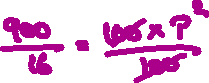 900/16 = 100 × P²/100